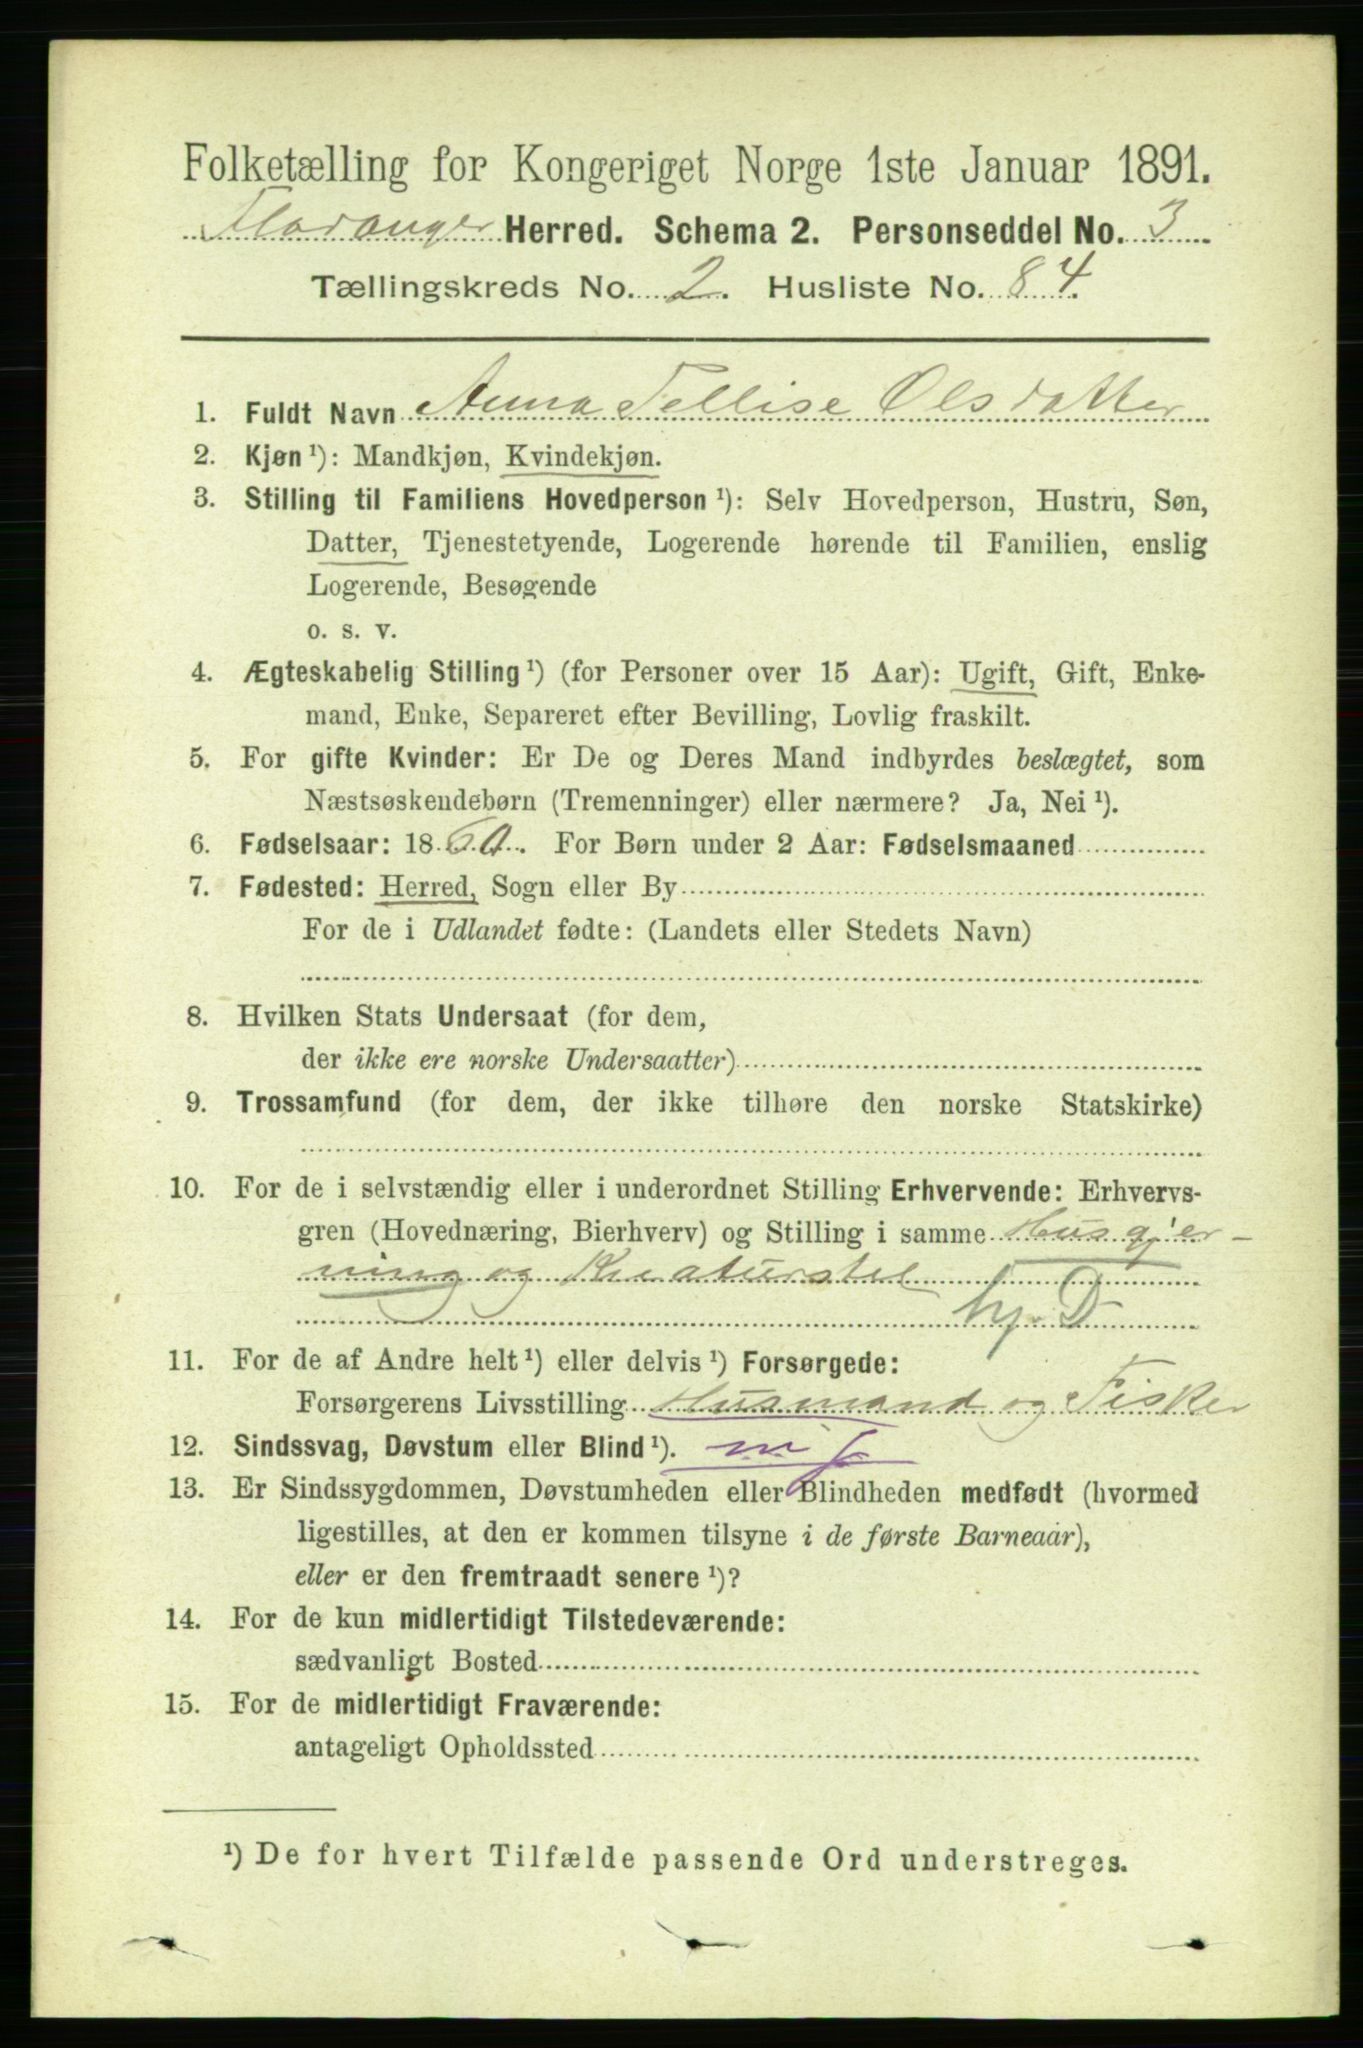 Folketælling for Kongeriget Norge 1ste Januar 1891.
Flatanger Herred. Schema 2. Personseddel No. 3
Tællingskreds No. 2. Husliste No. 84.
1. Fuldt Navn Anna Tellise Olsdatter
2. Kjøn ¹): Mandkjøn, Kvindekjøn.
3. Stilling til Familiens Hovedperson ¹): Selv Hovedperson, Hustru, Søn,
Datter, Tjenestetyende, Logerende hørende til Familien, enslig
Logerende, Besøgende
o. s. v.
4. Ægteskabelig Stilling ¹) (for Personer over 15 Aar): Ugift, Gift, Enke-
mand, Enke, Separeret efter Bevilling, Lovlig fraskilt.
5. For gifte Kvinder: Er De og Deres Mand indbyrdes beslægtet, som
Næstsøskendebørn (Tremenninger) eller nærmere? Ja, Nei ¹).
6. Fødselsaar: 1860. For Børn under 2 Aar: Fødselsmaaned
7. Fødested: Herred, Sogn eller By
For de i Udlandet fødte: (Landets eller Stedets Navn)
8. Hvilken Stats Undersaat (for dem,
der ikke ere norske Undersaatter)
9. Trossamfund (for dem, der ikke tilhøre den norske Statskirke)
10. For de i selvstændig eller i underordnet Stilling Erhvervende: Erhvervs-
gren (Hovednæring, Bierhverv) og Stilling i samme Husgjer-
ning og Kreaturstel
hj. D
11. For de af Andre helt ¹) eller delvis ¹) Forsørgede:
Forsørgerens Livsstilling Husmand og Fisker
12. Sindssvag, Døvstum eller Blind ¹).
13. Er Sindssygdommen, Døvstumheden eller Blindheden medfødt (hvormed
ligestilles, at den er kommen tilsyne i de første Barneaar),
eller er den fremtraadt senere ¹)?
14. For de kun midlertidigt Tilstedeværende:
sædvanligt Bosted
15. For de midlertidigt Fraværende:
antageligt Opholdssted
¹) De for hvert Tilfælde passende Ord understreges.